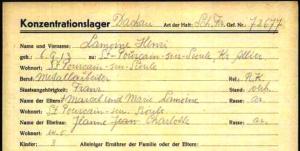 Konzentrationslager Dachau Art der Haft: Sch. Fr. Gef. Nr.: 72677
Name und Vorname: Lamoine Henri
geb.: 6.9.13 zu: St-Pourcain-sur-Sioule Kr. Allier
Wohnort: St Pourcain-sur-Sioule
Beruf: Metallarbeiter Rel.: R.K.
Staatsangehörigkeit: Franz. Stand: verh.
Name der Eltern: Marcel und Marie Lamoine Rasse: ar.
Wohnort: St Pourcain-sur-Sioule
Name der Ehefrau: Jeanne Jean Charlotte Rasse: ar.
Wohnort: w.o.
Kinder: 3 Alleiniger Ernährer der Familie oder der Eltern: